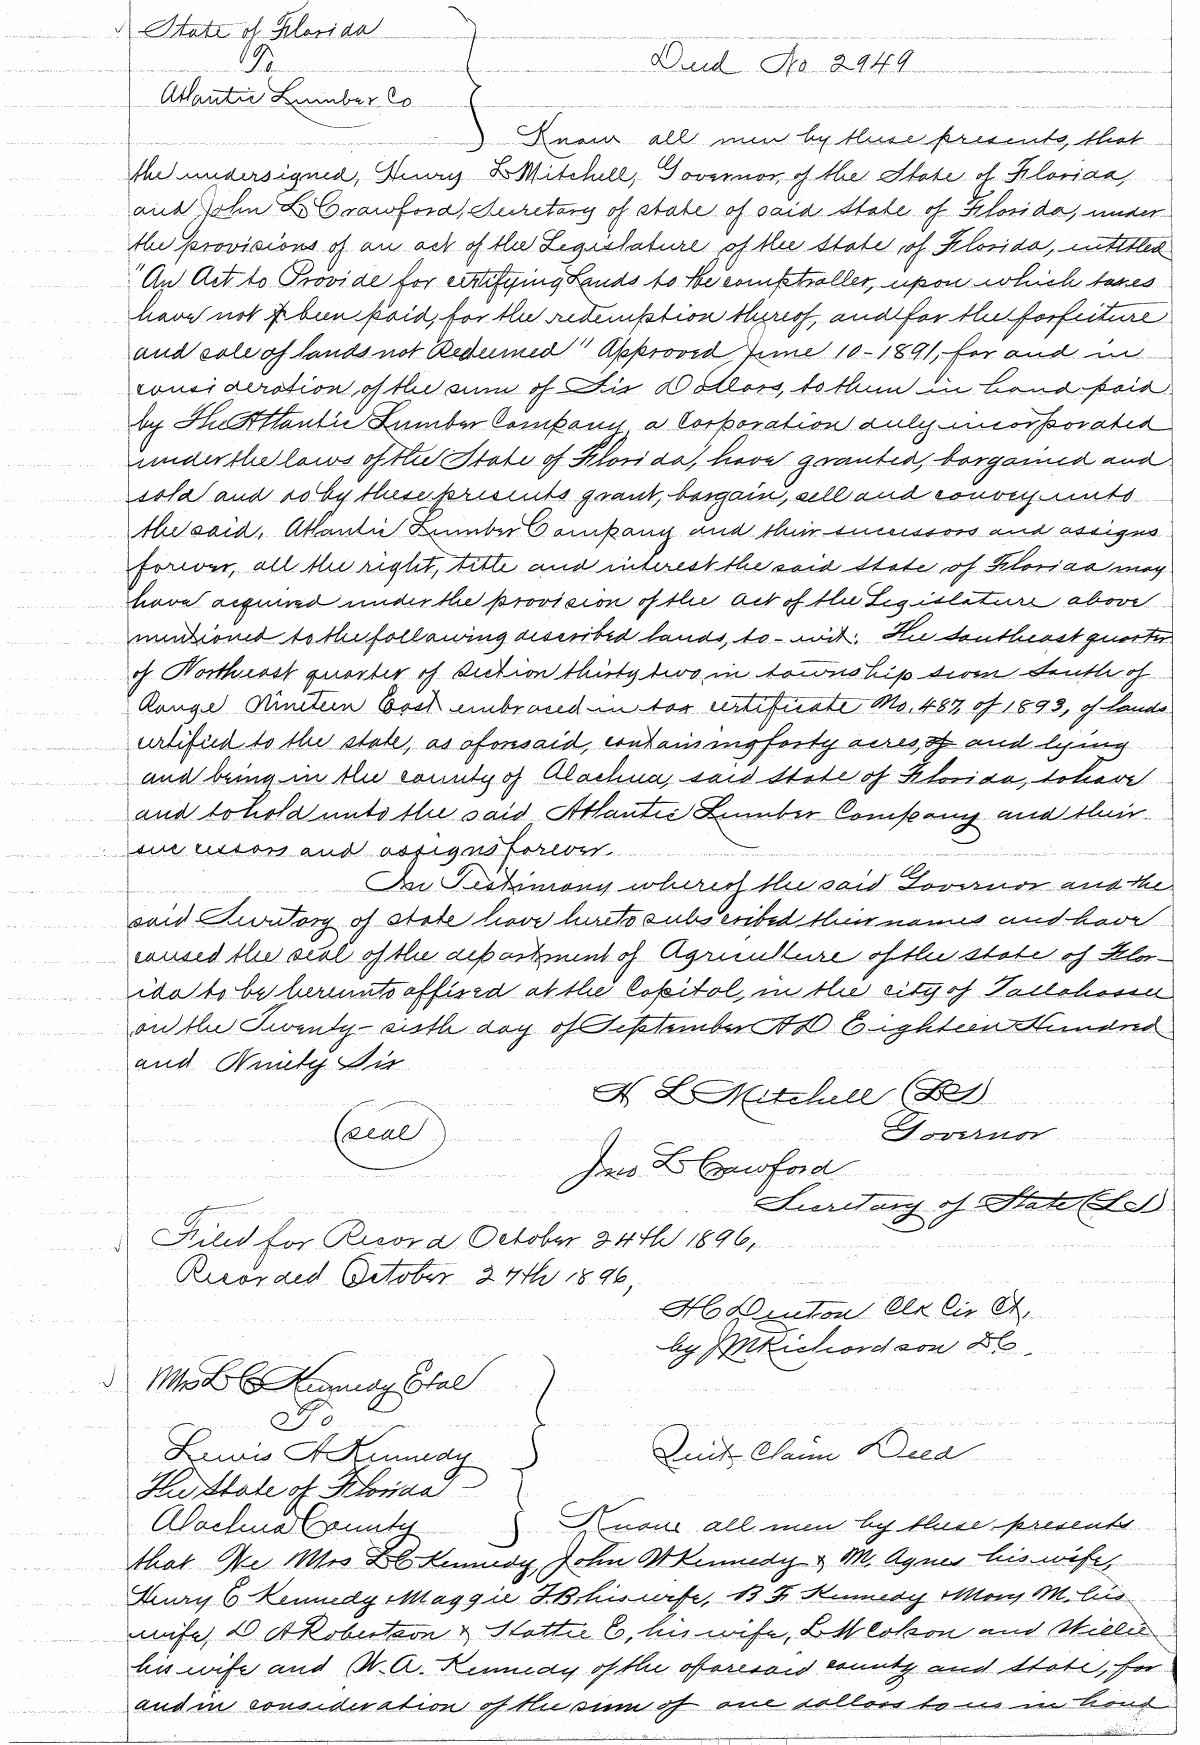 State of Florida
To
Deed No 2949
Atlantic Lumber Co
Know all men by these presents, that
the undersigned, Henry L Mitchell, Governor, of the State of Florida,
and John L Crawford, Secretary of state of said State of Florida, under
the provisions of an act of the Legislature of the State of Florida, intitled
"An Act to Provide for certifying Lands to the comptroller, upon which taxes
have not been paid, for the redemption thereof, and for the forfeiture
and sale of lands not Redeemed" Approved June 10-1891, for and in
consideration of the sum of Six Dollars, to them in hand paid
by The Atlantic Lumber Company a Corporation duly incorporated
under the laws of the State of Florida, have granted, bargained and
sold and do by these presents grant, bargain, sell and convey unto
the said, Atlantic Lumber Company and their sucessors and assigns
forever, all the right, title and interest the said State of Florida may
have acquired under the provision of the act of the Legislature above
mentioned to the following described lands, to-wit: The Southeast quarter
of Northeast quarter of section thirty two, in township seven South of
Range Nineteen East embrased in tax certificate No. 487, of 1893, of lands
certified to the state, as aforesaid, containing forty acres, and lying
and being in the county of Alachua, said State of Florida, to have
and to hold unto the said Atlantic Lumber Company and their
successors and assigns forever.
In Testimony whereof the said Governor and the
said Secretary of state have hereto subscribed their names and have
caused the seal of the department of Agriculture of the state of Flor-
ida to be hereunto affixed at the Capitol, in the city of Tallahassee
on the Twenty-sixth day of September AD Eighteen Hundred
and Ninety Six
H L Mitchell (LS)
(seal)
Governor
Jno L Crawford
Secretary of State (LS)
Filed for Record October 24th 1896,
Recorded October 27th 1896,
H C Denton Clk Cir Ct,
by J M Richardson DC.
Mrs L C Kennedy Etal
To
Lewis A Kennedy
Quit Claim Deed
The State of Florida
Alachua County
Know all men by these presents
that We Mrs L C Kennedy, John W Kennedy & M. Agnes his wife,
Henry E Kennedy & Maggie F.B his wife, B F Kennedy & Mary M. his
wife, D A Robertson & Hattie E, his wife, L W Colson and Willie
his wife and W. A. Kennedy of the aforesaid county and state, for
and in consideration of the sum of one dollars to us in hand